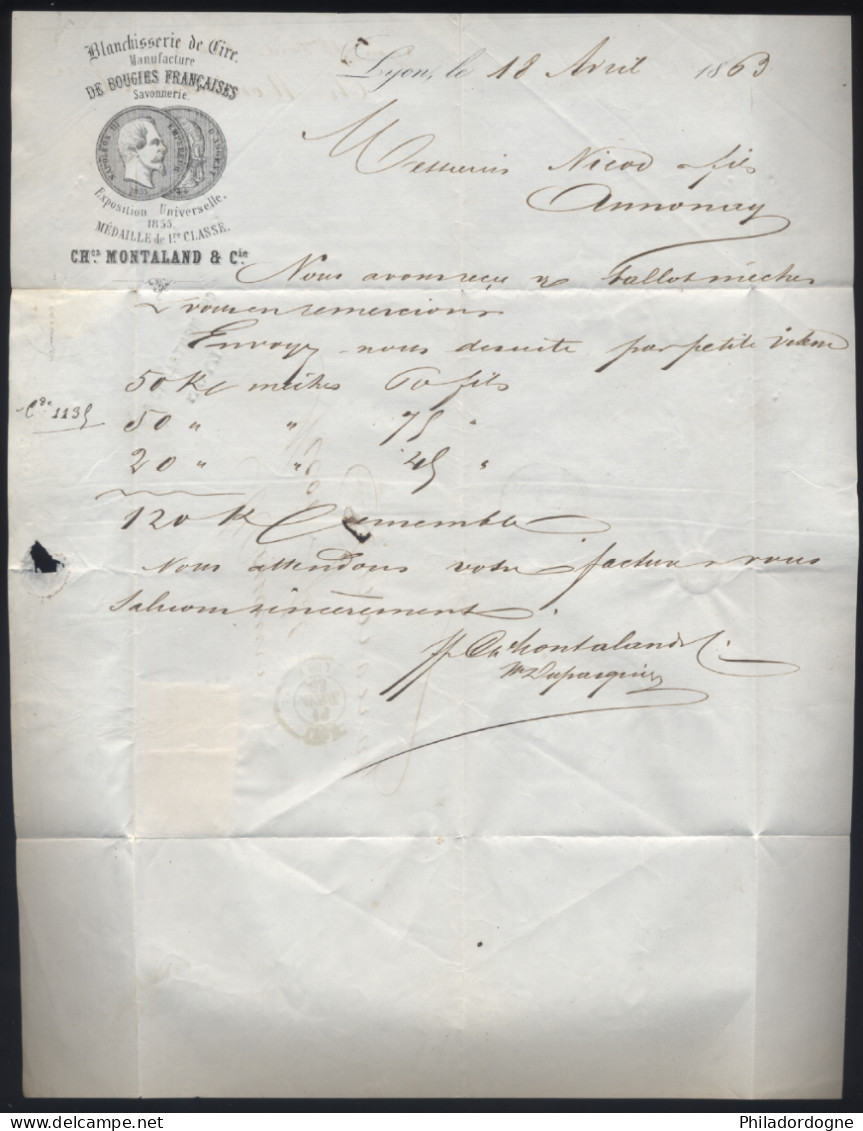 Blanchisserie de Cire.
Manufacture
DE BOUGIES FRANÇAISES
Savonnerie.
NAPOLEON III EMPEREUR
Exposition Universelle.
1855.
MÉDAILLE de 1re CLASSE.
CHes MONTALAND & Cie
Lyon, le 18 Avril 1863
Messieurs Nicod & fils
Annonay
Nous avons reçu ballot mèches
& vous en remercions
Envoyez-nous de suite par petite vitesse
50 K mèches 60 fils
50 " " 75 "
20 " " 45 "
Cde 1135
120 K Ensemble
Nous attendons votre facture & vous
saluons sincèrement.
pp Ch Montaland & C.
Duparquier
www.delcampe.net
Philadordogne